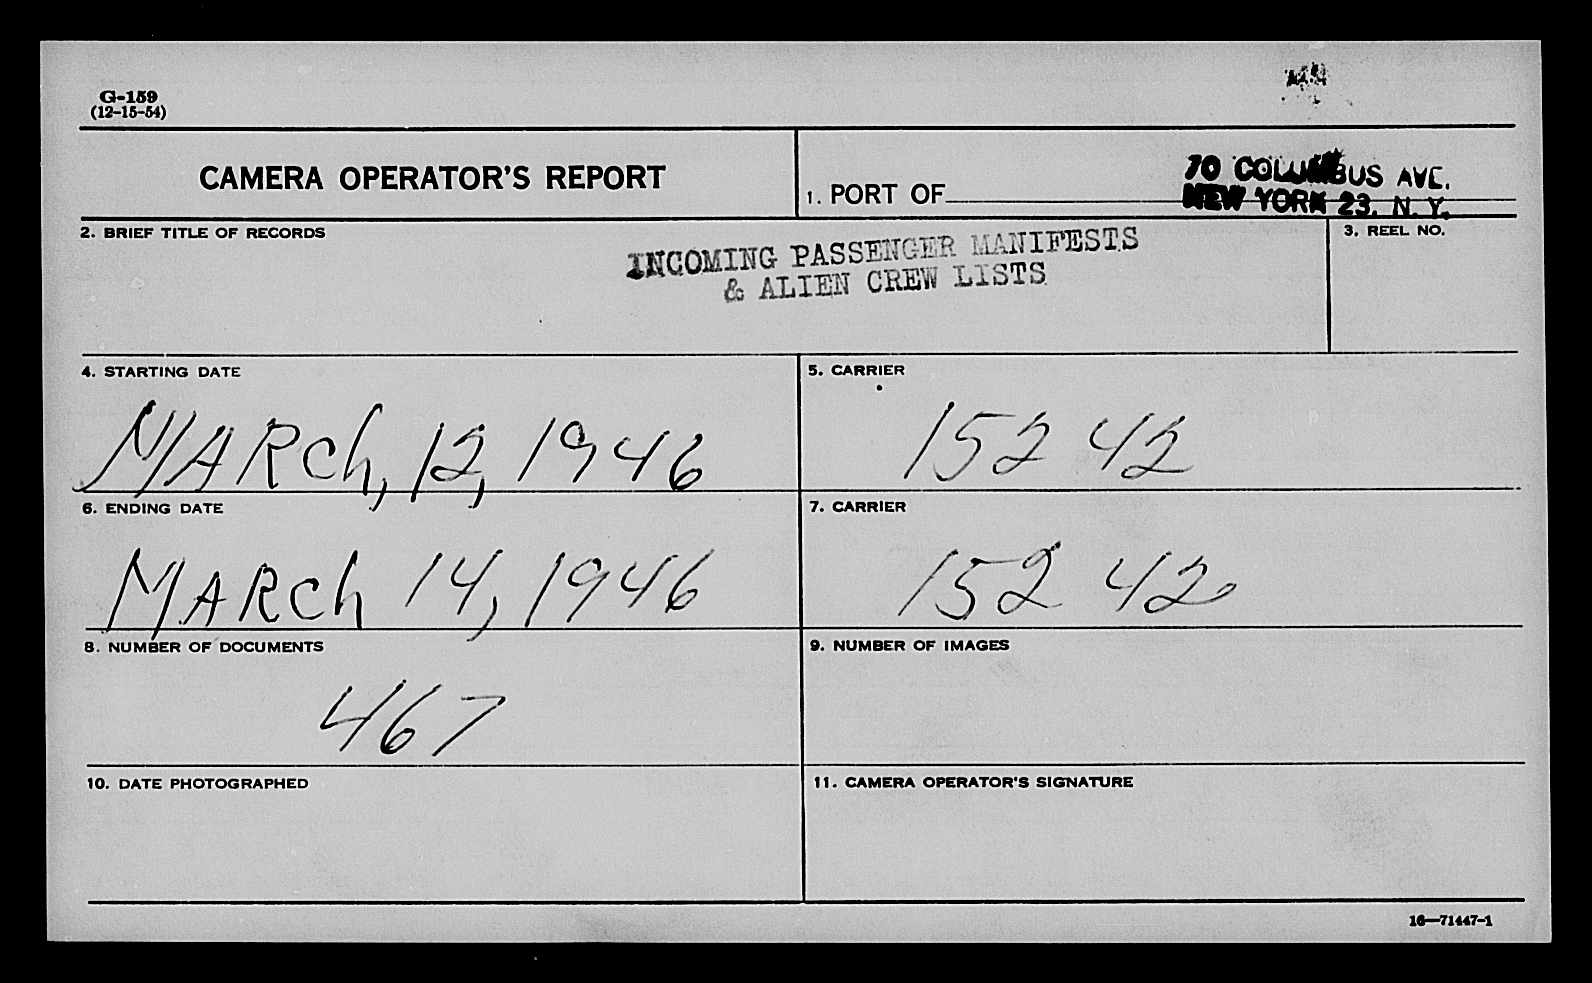 G-159
(12-15-54)
CAMERA OPERATOR'S REPORT
1. PORT OF
70 COLUMBUS AVE.
NEW YORK 23. N. Y.
2. BRIEF TITLE OF RECORDS
INCOMING PASSENGER MANIFESTS
& ALIEN CREW LISTS
3. REEL NO.
4. STARTING DATE
MARCh, 12, 1946
5. CARRIER
152 42
6. ENDING DATE
MARCh 14, 1946
7. CARRIER
152 42
8. NUMBER OF DOCUMENTS
467
9. NUMBER OF IMAGES
10. DATE PHOTOGRAPHED
11. CAMERA OPERATOR'S SIGNATURE
16—71447-1